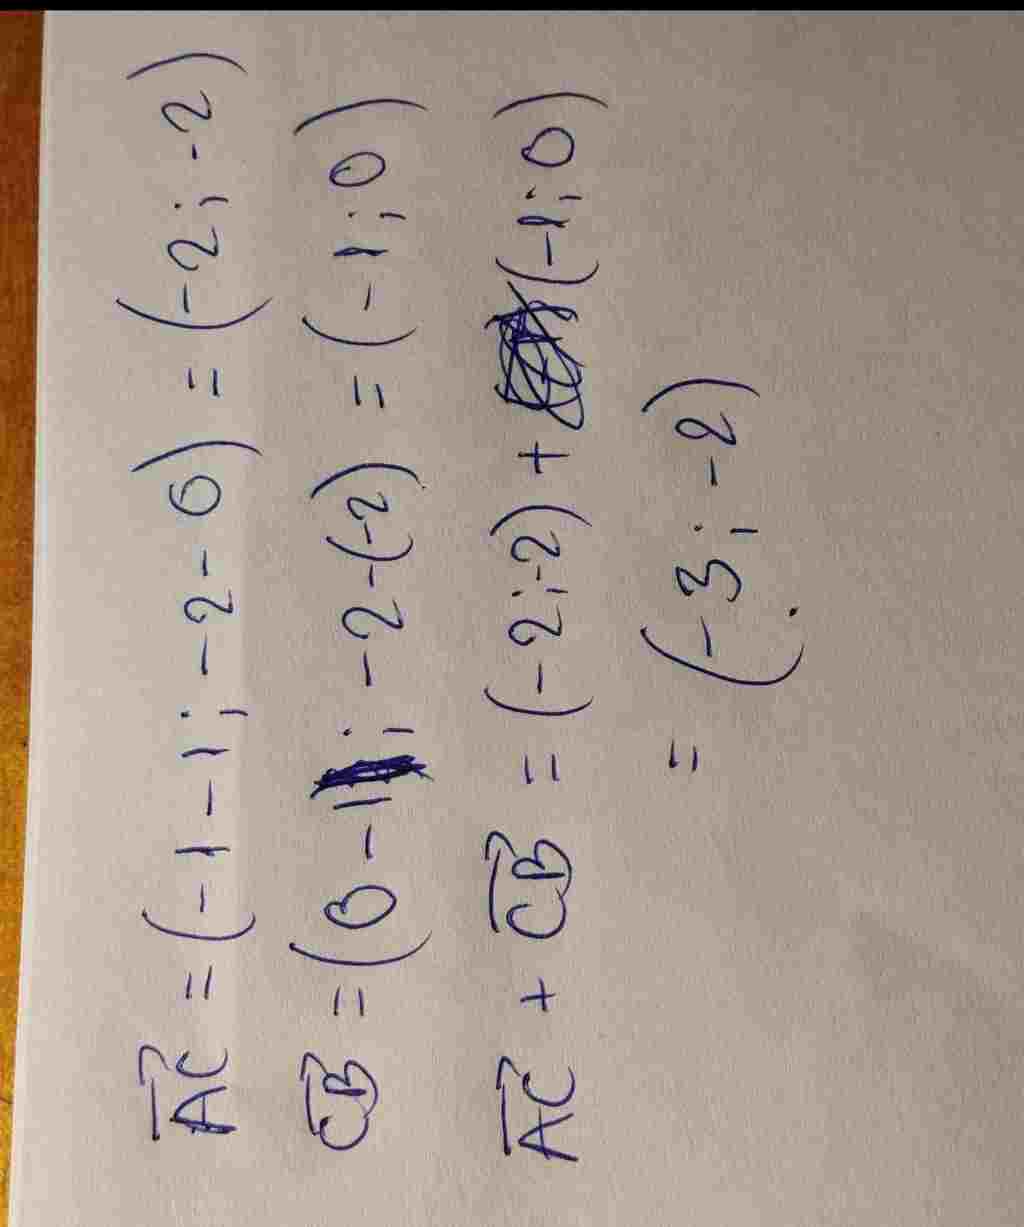 $\overrightarrow{AC} = (-1-1; -2-0) = (-2; -2)$
$\overrightarrow{CB} = (0-1; -2-(-2) = (-1; 0)$
$\overrightarrow{AC} + \overrightarrow{CB} = (-2; -2) + (-1; 0)$
$= (-3; -2)$